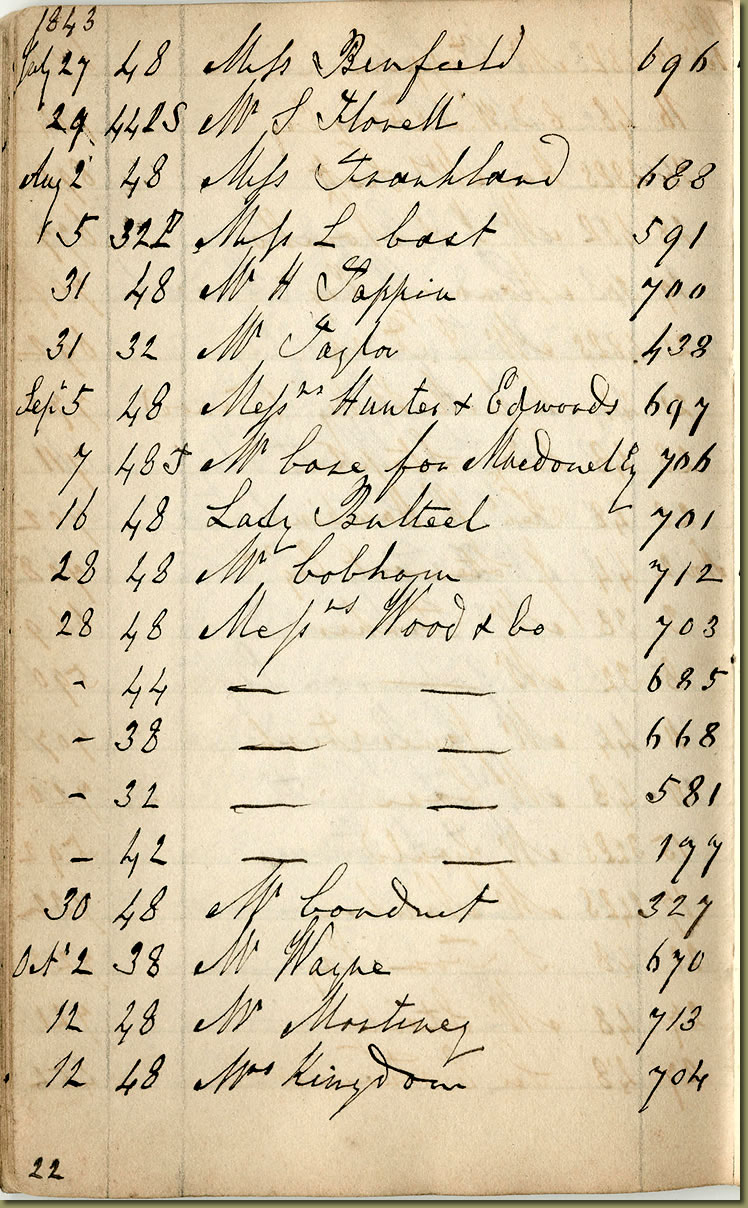 1843
July 27 48 Miss Binfield 696
29 44 S Mr S Flovell
Aug 2 48 Miss Frankland 688
5 32 Miss L Cast 591
31 48 Mr H Tappin 700
31 32 Mr Taylor 438
Sepr 5 48 Messrs Hunter & Edwards 697
7 48 Mr Case for Macdonell Esq 706
16 48 Lady Bulteel 701
28 48 Mr Cobham 712
28 48 Messrs Wood & Co 703
- 44 — — 685
- 38 — — 668
- 32 — — 581
- 42 — — 177
30 48 Mr Conduct 327
Octr 2 38 Mr Wayne 670
12 48 Mr 713
12 48 Mrs Kingdom 704
22